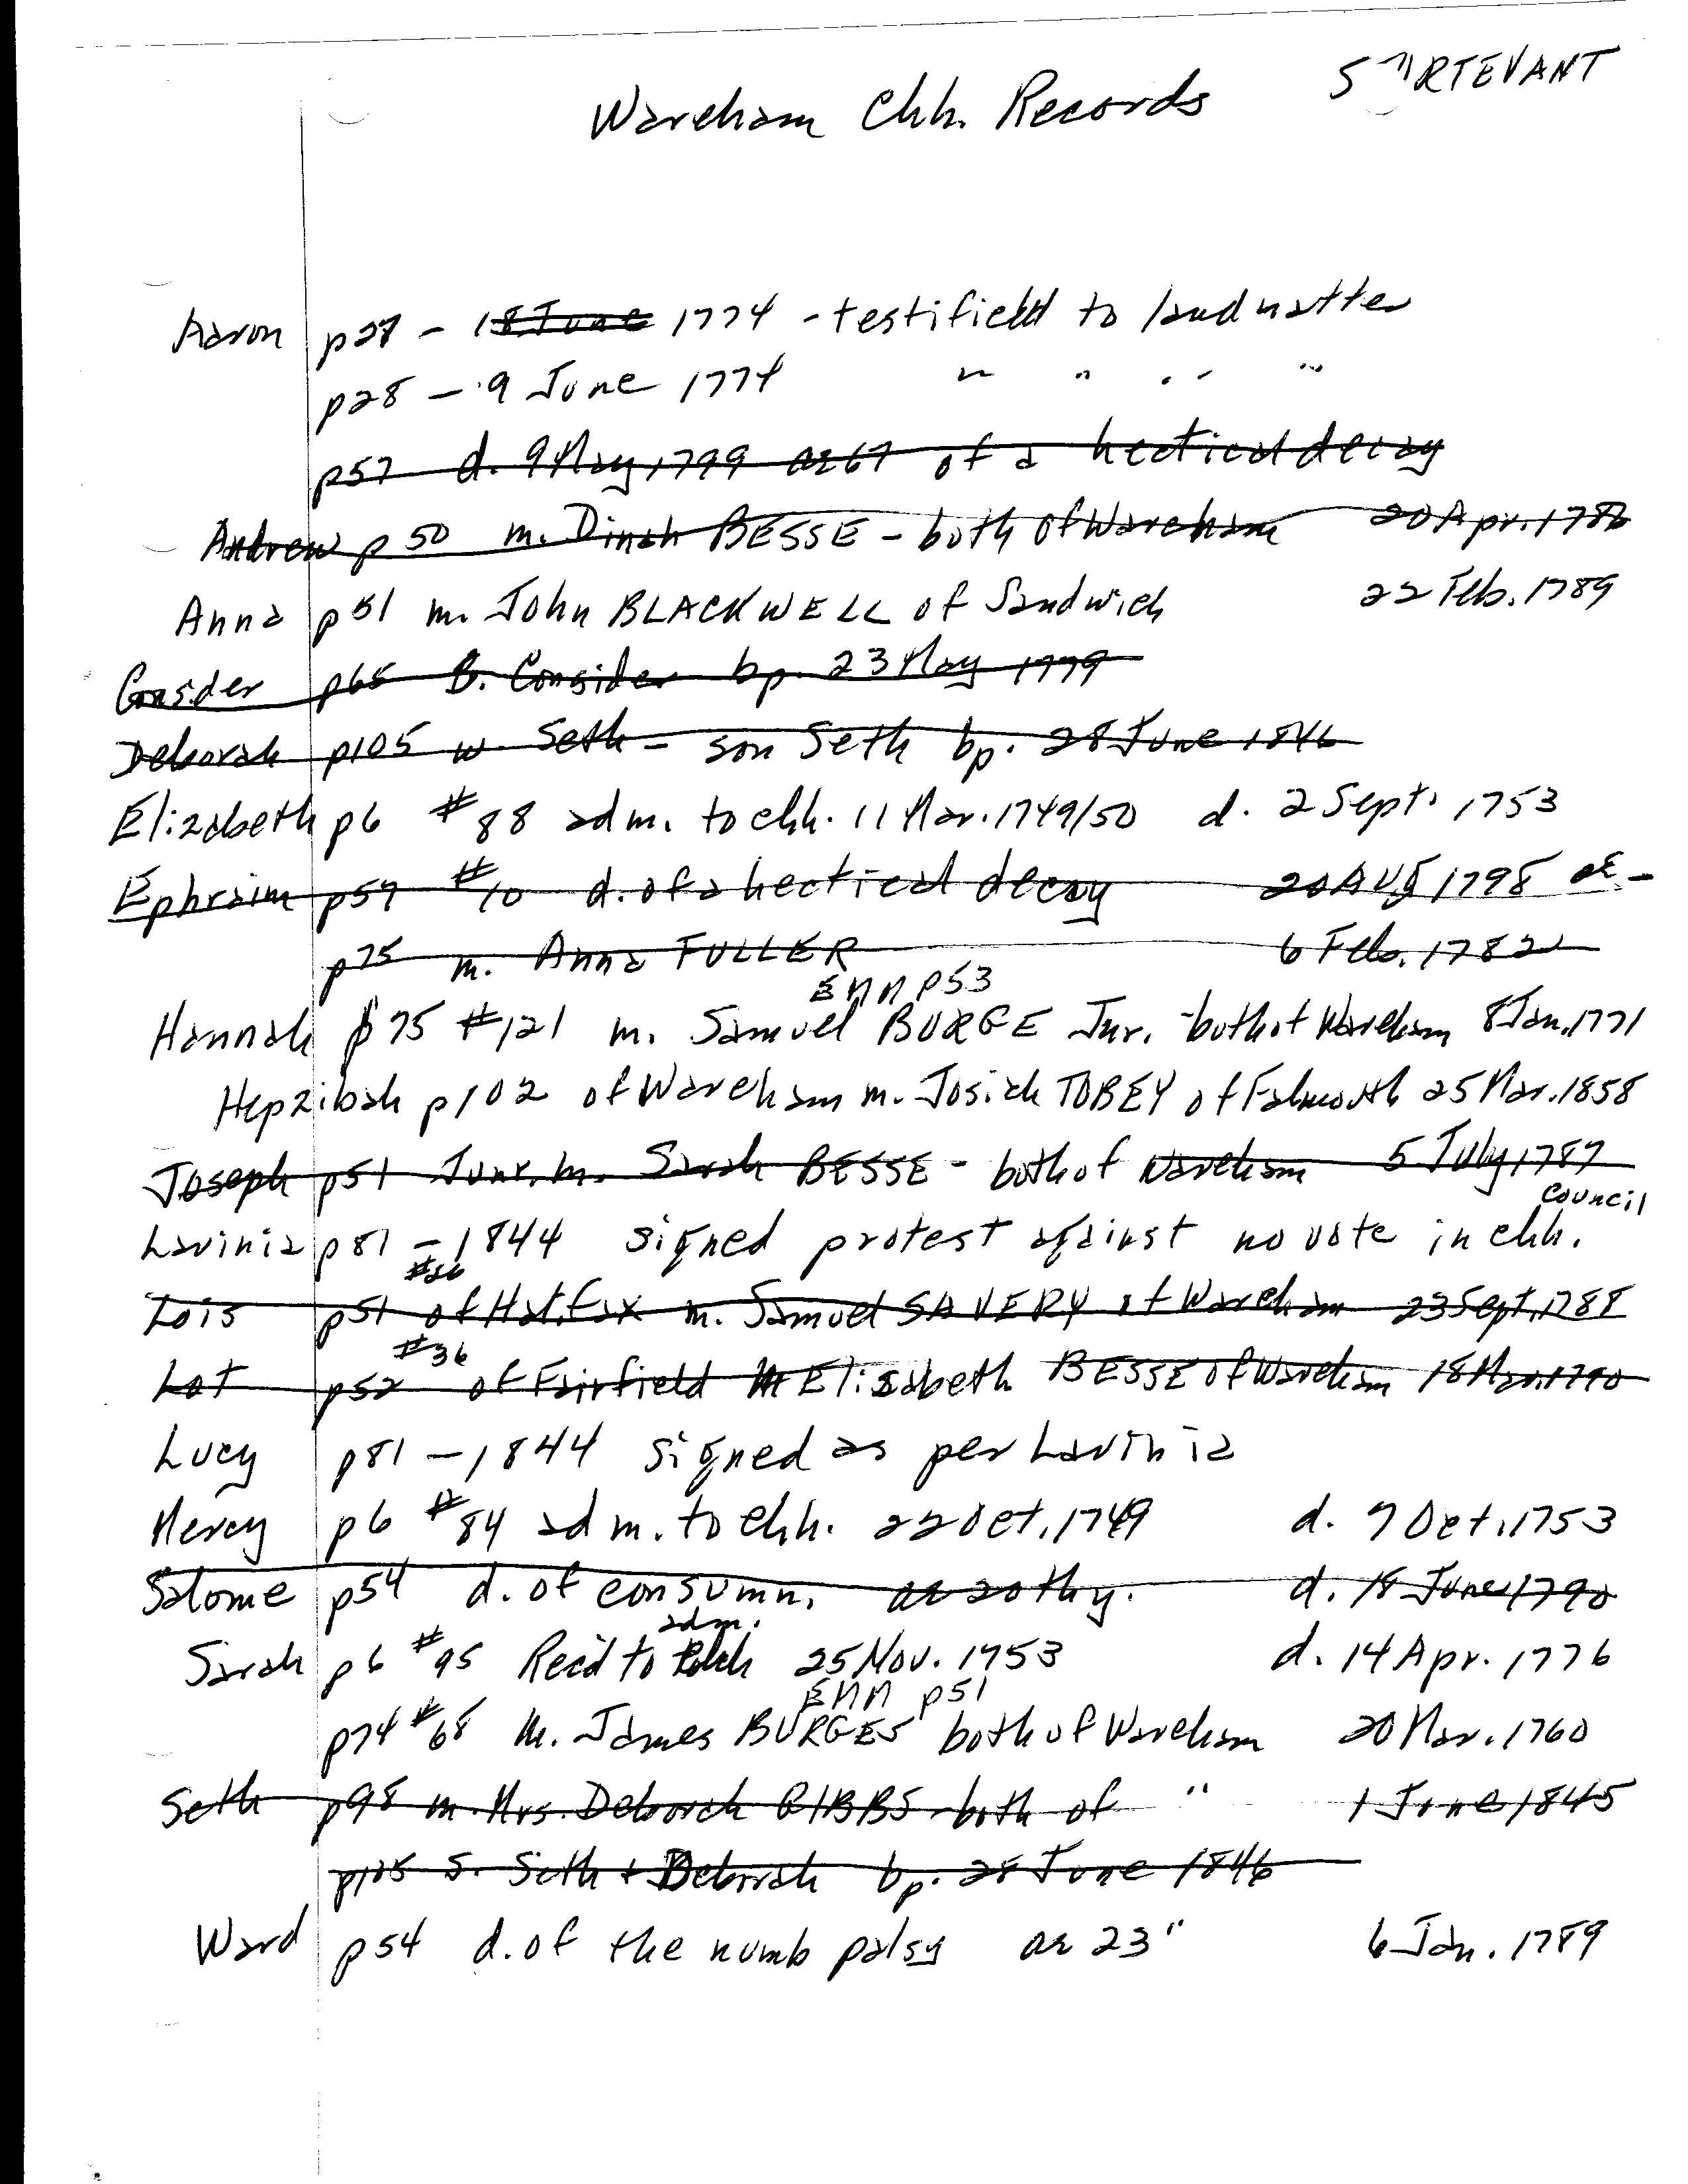 STURTEVANT
Wareham Chh. Records
Aaron p27 - 18 June 1774 - testifield to land matter
p28 - 9 June 1774 " " " "
p57 d. 9 May 1799 ae 67 of a hectical decay
Andrew p 50 m. Dinah BESSE - both of Wareham 20 Apr. 1786
Anna p51 m. John BLACKWELL of Sandwich 22 Feb. 1789
Consider p68 B. Consider bp. 23 May 1779
Deborah p105 w. Seth - son Seth bp. 28 June 1846
Elizabeth p6 #88 adm. to chh. 11 Mar. 1749/50 d. 2 Sept. 1753
Ephraim p57 #10 d. of a hectical decay 20 Aug 1798 ae -
p75 m. Anna FULLER 6 Feb. 1782
EMM p53
Hannah p75 #121 m. Samuel BURGE Jnr. - both of Wareham 8 Jan. 1771
Hepzibah p102 of Wareham m. Josiah TOBEY of Falmouth 25 Mar. 1858
Joseph p51 Junr. m. Sarah BESSE - both of Wareham 5 July 1787
council
Lavinia p81 - 1844 signed protest against no vote in chh.
#26
Lois p51 of Halifax m. Samuel SAVERY of Wareham 23 Sept. 1788
#36
Lot p52 of Fairfield m Elisabeth BESSE of Wareham 18 Mar. 1790
Lucy p81 - 1844 signed as per Lavinia
Mercy p6 #84 adm. to chh. 22 Oct. 1749 d. 7 Oct. 1753
Salome p54 d. of consumn. ae 20 thy. d. 18 June 1790
adm.
Sarah p6 #95 Rec'd to chh 25 Nov. 1753 d. 14 Apr. 1776
EMM p51
p74 #68 m. James BURGES both of Wareham 20 Mar. 1760
Seth p98 m. Mrs. Deborah GIBBS - both of " 1 June 1845
p105 S. Seth + Deborah bp. 28 June 1846
Ward p54 d. of the numb palsy ae 23 " 6 Jan. 1789